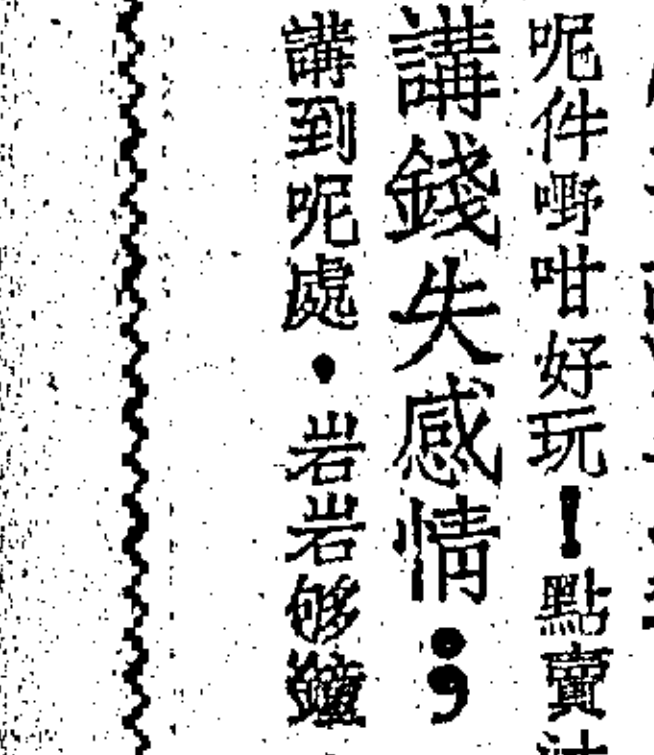 呢件嘢咁好玩！點賣
講錢失感情；
講到呢處・岩岩够鐘